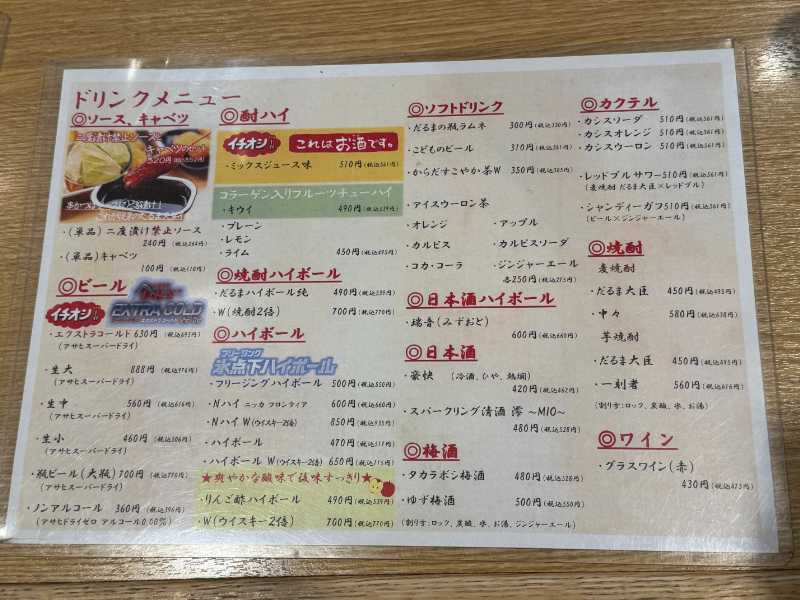 ドリンクメニュー
◎ソース、キャベツ
二度漬け禁止ソースと
キャベツのセット
320円(税込352円)
・(単品)二度漬け禁止ソース
240円(税込264円)
・(単品)キャベツ
100円(税込110円)
◎ビール
イチオシ
EXTRA COLD
・エクストラコールド 630円(税込693円)
(アサヒスーパードライ)
・生大 888円(税込976円)
(アサヒスーパードライ)
・生中 560円(税込616円)
(アサヒスーパードライ)
・生小 460円(税込506円)
(アサヒスーパードライ)
・瓶ビール(大瓶) 700円(税込770円)
(アサヒスーパードライ)
・ノンアルコール 360円(税込396円)
(アサヒドライゼロ アルコール0.00%)
◎酎ハイ
イチオシ
これはお酒です。
・ミックスジュース味 510円(税込561円)
コラーゲン入りフルーツチューハイ
・キウイ 490円(税込539円)
・プレーン
・レモン
・ライム 450円(税込495円)
◎焼酎ハイボール
・だるまハイボール純 490円(税込539円)
・W(焼酎2倍) 700円(税込770円)
◎ハイボール
フリージング
氷点下ハイボール
・フリージングハイボール 500円(税込550円)
・Nハイ ニッカ フロンティア 600円(税込660円)
・NハイW(ウイスキー2倍) 850円(税込935円)
・ハイボール 470円(税込517円)
・ハイボールW(ウイスキー2倍) 650円(税込715円)
★爽やかな酸味で後味すっきり★
・りんご酢ハイボール 490円(税込539円)
・W(ウイスキー2倍) 700円(税込770円)
◎ソフトドリンク
・だるまの瓶ラムネ 300円(税込330円)
・こどものビール 310円(税込341円)
・からだすこやか茶W 350円(税込385円)
・アイスウーロン茶
・オレンジ ・アップル
・カルピス ・カルピスソーダ
・コカ・コーラ ・ジンジャーエール
各250円(税込275円)
◎日本酒ハイボール
・瑞音(みずおと)
600円(税込660円)
◎日本酒
・豪快 (冷酒、ひや、熱燗)
420円(税込462円)
・スパークリング清酒 澪 ~MIO~
480円(税込528円)
◎梅酒
・タカラボシ梅酒 480円(税込528円)
・ゆず梅酒 500円(税込550円)
(割り方:ロック、炭酸、水、お湯、ジンジャーエール)
◎カクテル
・カシスソーダ 510円(税込561円)
・カシスオレンジ 510円(税込561円)
・カシスウーロン 510円(税込561円)
・レッドブルサワー 510円(税込561円)
(麦焼酎 だるま大臣×レッドブル)
・シャンディーガフ 510円(税込561円)
(ビール×ジンジャーエール)
◎焼酎
麦焼酎
・だるま大臣 450円(税込495円)
・中々 580円(税込638円)
芋焼酎
・だるま大臣 450円(税込495円)
・一刻者 560円(税込616円)
(割り方:ロック、炭酸、水、お湯)
◎ワイン
・グラスワイン(赤)
430円(税込473円)